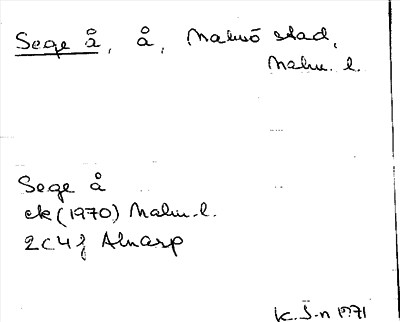 Sege å, å, Malmö stad,
Malm. l.
Sege å
ek (1970) Malm. l.
2C4f Alnarp
K. J-n 1971